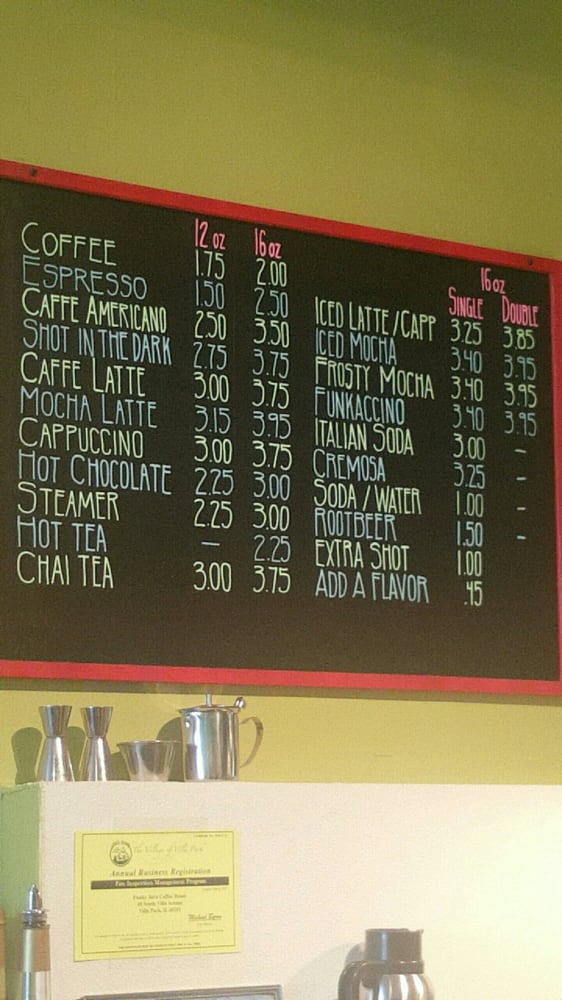 12 oz 16 oz
COFFEE 1.75 2.00
ESPRESSO 1.50 2.50
CAFFE AMERICANO 2.50 3.50
SHOT IN THE DARK 2.75 3.75
CAFFE LATTE 3.00 3.75
MOCHA LATTE 3.15 3.95
CAPPUCCINO 3.00 3.75
HOT CHOCOLATE 2.25 3.00
STEAMER 2.25 3.00
HOT TEA — 2.25
CHAI TEA 3.00 3.75
16 oz
SINGLE DOUBLE
ICED LATTE / CAPP 3.25 3.85
ICED MOCHA 3.40 3.95
FROSTY MOCHA 3.40 3.95
FUNKACCINO 3.40 3.95
ITALIAN SODA 3.00 -
CREMOSA 3.25 -
SODA / WATER 1.00 -
ROOTBEER 1.50 -
EXTRA SHOT 1.00
ADD A FLAVOR .45
The Village of Villa Park
Annual Business Registration
Fire Inspection Management Program
Funky Java Coffee House
Villa Park, IL 60181